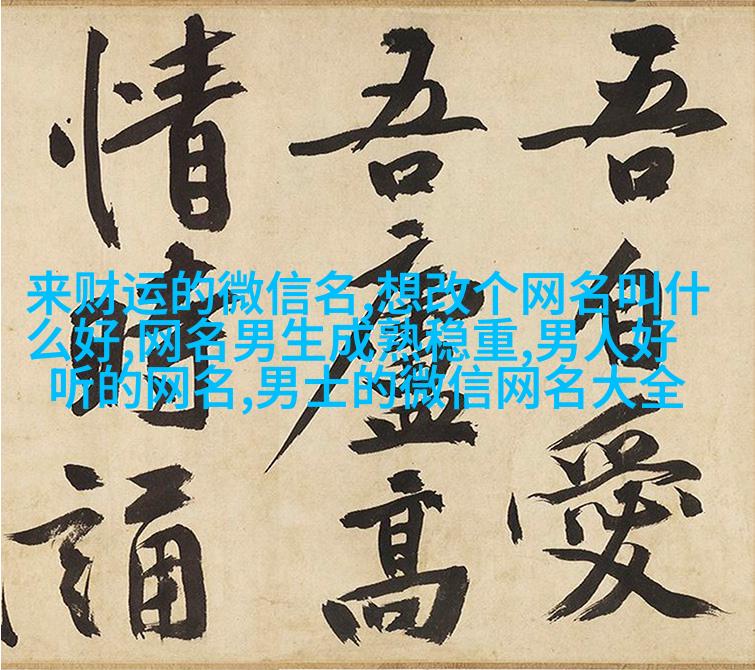 吾自愛
吾廬高
情時誦
来财运的微信名,想改个网名叫什
么好,网名男生成熟稳重,男人好
听的网名,男士的微信网名大全